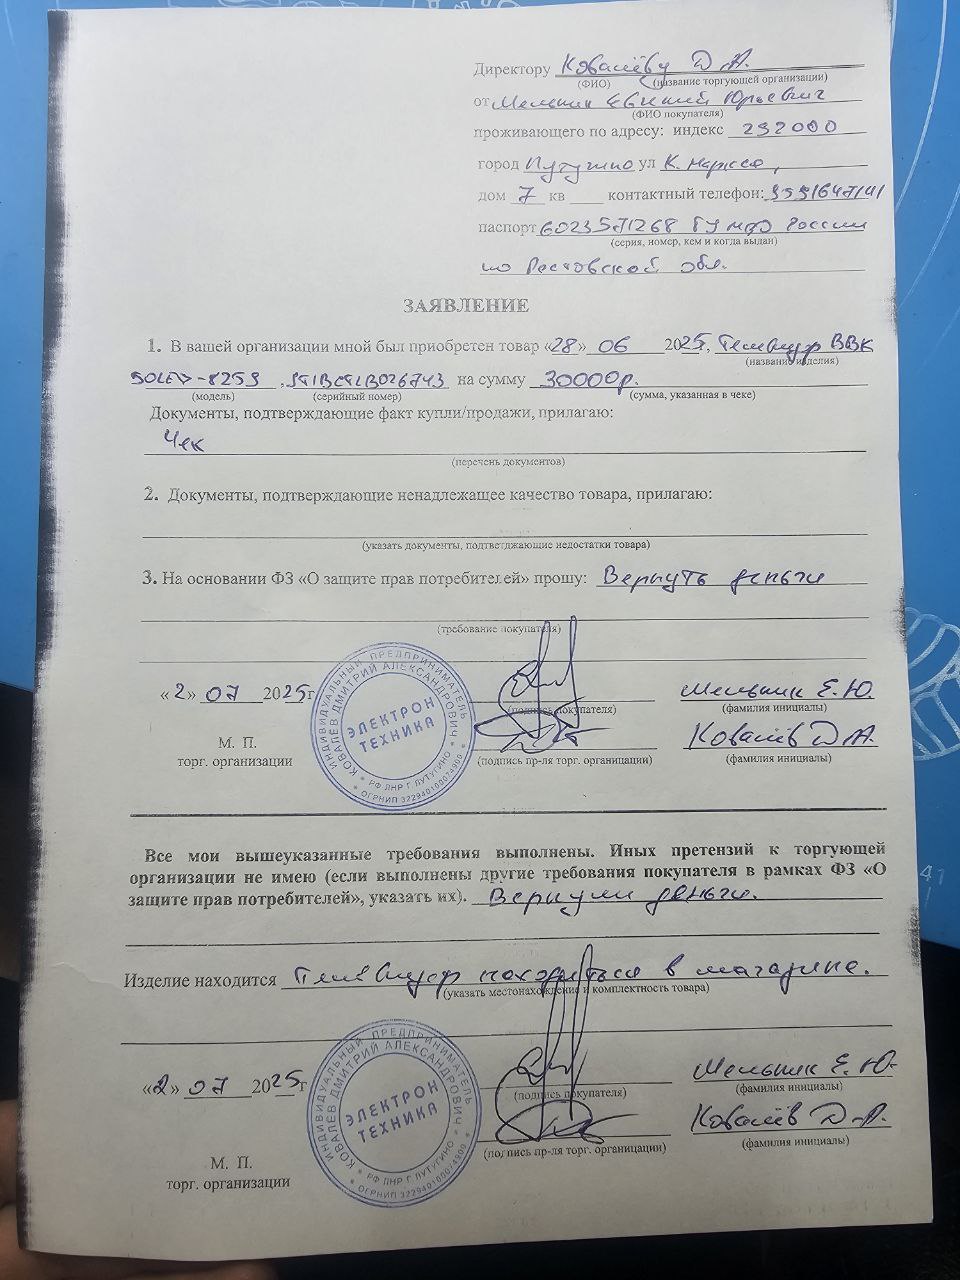 Директору Ковалёву Д А.
(ФИО) (название торгующей организации)
от Мельник Евгений Юрьевич
(ФИО покупателя)
проживающего по адресу: индекс 292000
город Лутугино ул К. Маркса,
дом 7 кв контактный телефон: 9591647141
паспорт 6023571268 ГУ МВД России
(серия, номер, кем и когда выдан)
по Ростовской обл.
ЗАЯВЛЕНИЕ
1. В вашей организации мной был приобретен товар «28» 06 2025, Телевизор BBK
(название изделия)
50LED-8259, на сумму 30000р.
(модель) (серийный номер) (сумма, указанная в чеке)
Документы, подтверждающие факт купли/продажи, прилагаю:
Чек
(перечень документов)
2. Документы, подтверждающие ненадлежащее качество товара, прилагаю:
(указать документы, подтветджающие недостатки товара)
3. На основании ФЗ «О защите прав потребителей» прошу: Вернуть деньги
(требование покупателя)
«2» 07 2025г
(подпись покупателя)
Мельник Е.Ю.
(фамилия инициалы)
Ковалёв Д А.
М. П.
торг. организации
(подпись пр-ля торг. органицации)
(фамилия инициалы)
ИНДИВИДУАЛЬНЫЙ ПРЕДПРИНИМАТЕЛЬ
КОВАЛЕВ ДМИТРИЙ АЛЕКСАНДРОВИЧ
ЭЛЕКТРОН
ТЕХНИКА
РФ ЛНР Г ЛУТУГИНО
ОГРНИП 322940100074900
Все мои вышеуказанные требования выполнены. Иных претензий к торгующей
организации не имею (если выполнены другие требования покупателя в рамках ФЗ «О
защите прав потребителей», указать их). Вернули деньги.
Изделие находится Телевизор находиться в магазине.
(указать местонахождение и комплектность товара)
«2» 07 2025г
Мельник Е. Ю.
(подпись покупателя) (фамилия инициалы)
Ковалёв Д.А.
М. П.
торг. организации
(подпись пр-ля торг. органицации) (фамилия инициалы)
ИНДИВИДУАЛЬНЫЙ ПРЕДПРИНИМАТЕЛЬ
КОВАЛЕВ ДМИТРИЙ АЛЕКСАНДРОВИЧ
ЭЛЕКТРОН
ТЕХНИКА
РФ ЛНР Г ЛУТУГИНО
ОГРНИП 322940100074900
41